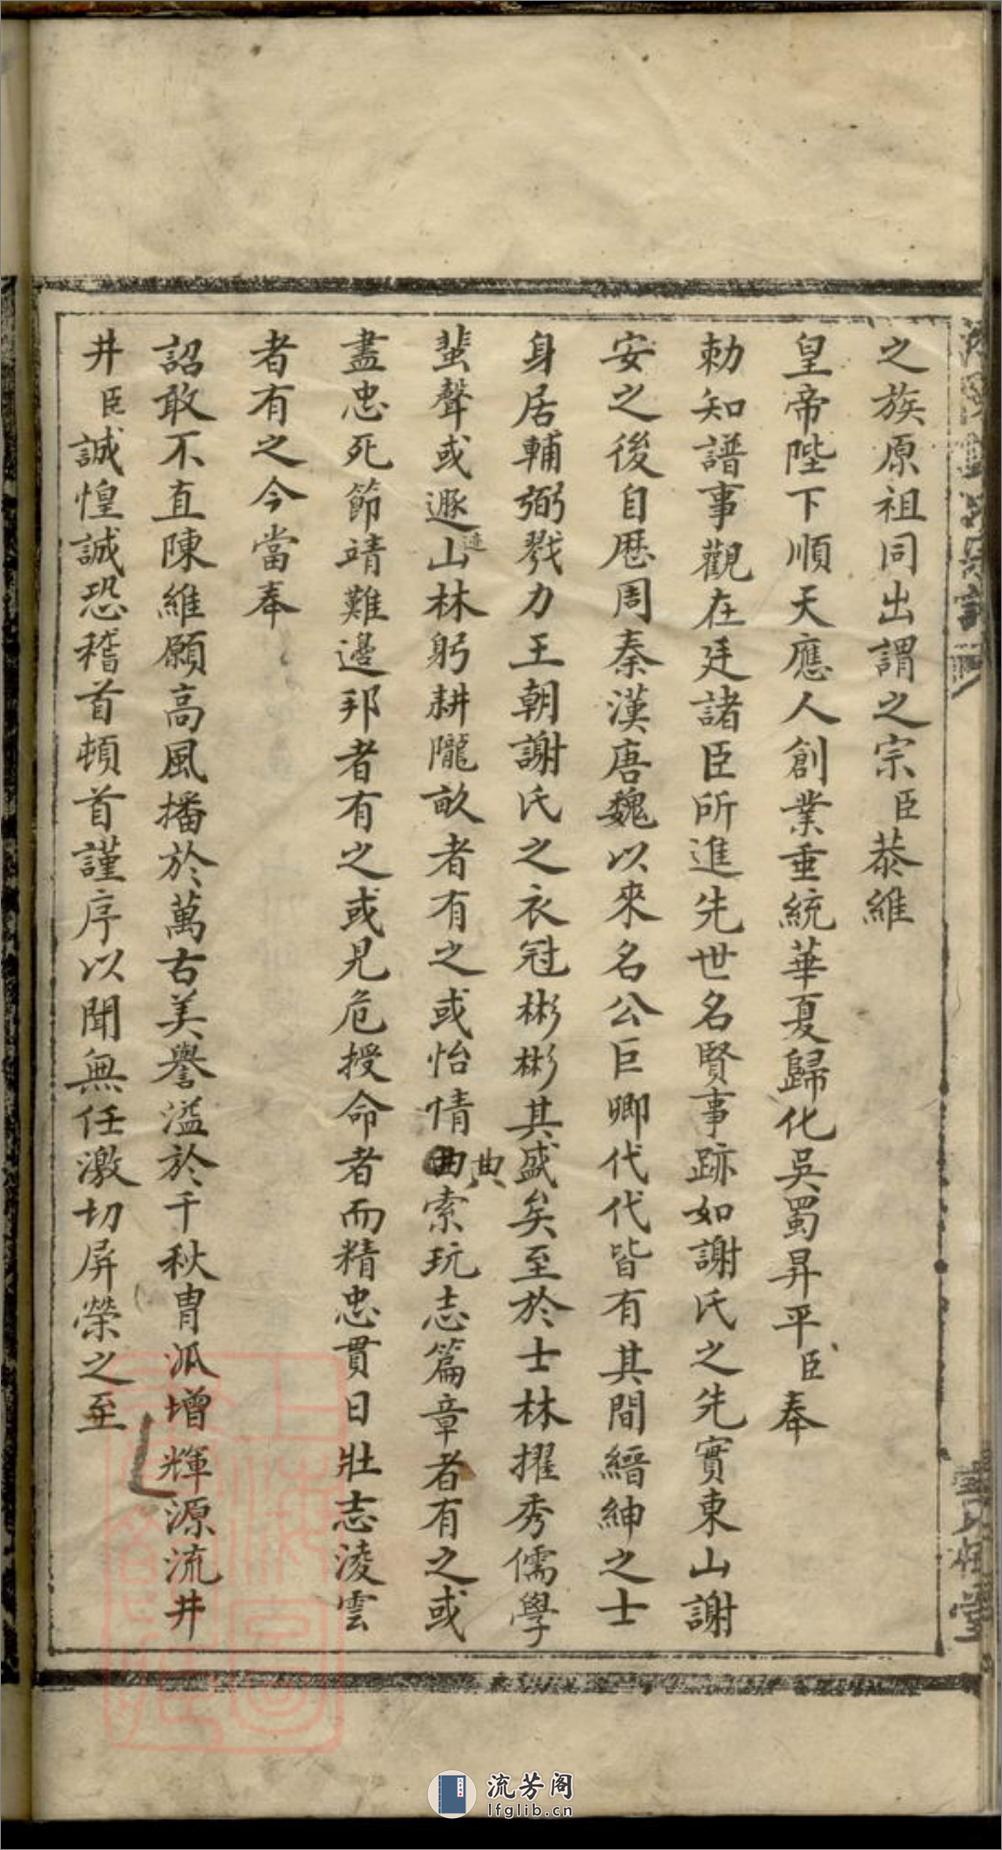 之族原祖同出謂之宗臣恭維
皇帝陛下順天應人創業垂統華夏歸化吳蜀昇平臣奉
勅知譜事觀在廷諸臣所進先世名賢事跡如謝氏之先實東山謝
安之後自歷周秦漢唐魏以來名公巨卿代代皆有其間縉紳之士
身居輔弼戮力王朝謝氏之衣冠彬彬其盛矣至於士林擢秀儒學
蜚聲或遯山林躬耕隴畝者有之或怡情曲索玩志篇章者有之或
迹
典
盡忠死節靖難邊邦者有之或見危授命者而精忠貫日壯志凌雲
者有之今當奉
詔敢不直陳維願高風播於萬古美譽溢於千秋胄派增輝源流井
井臣誠惶誠恐稽首頓首謹序以聞無任激切屏榮之至
寶樹堂
流芳阁
lfglib.cn